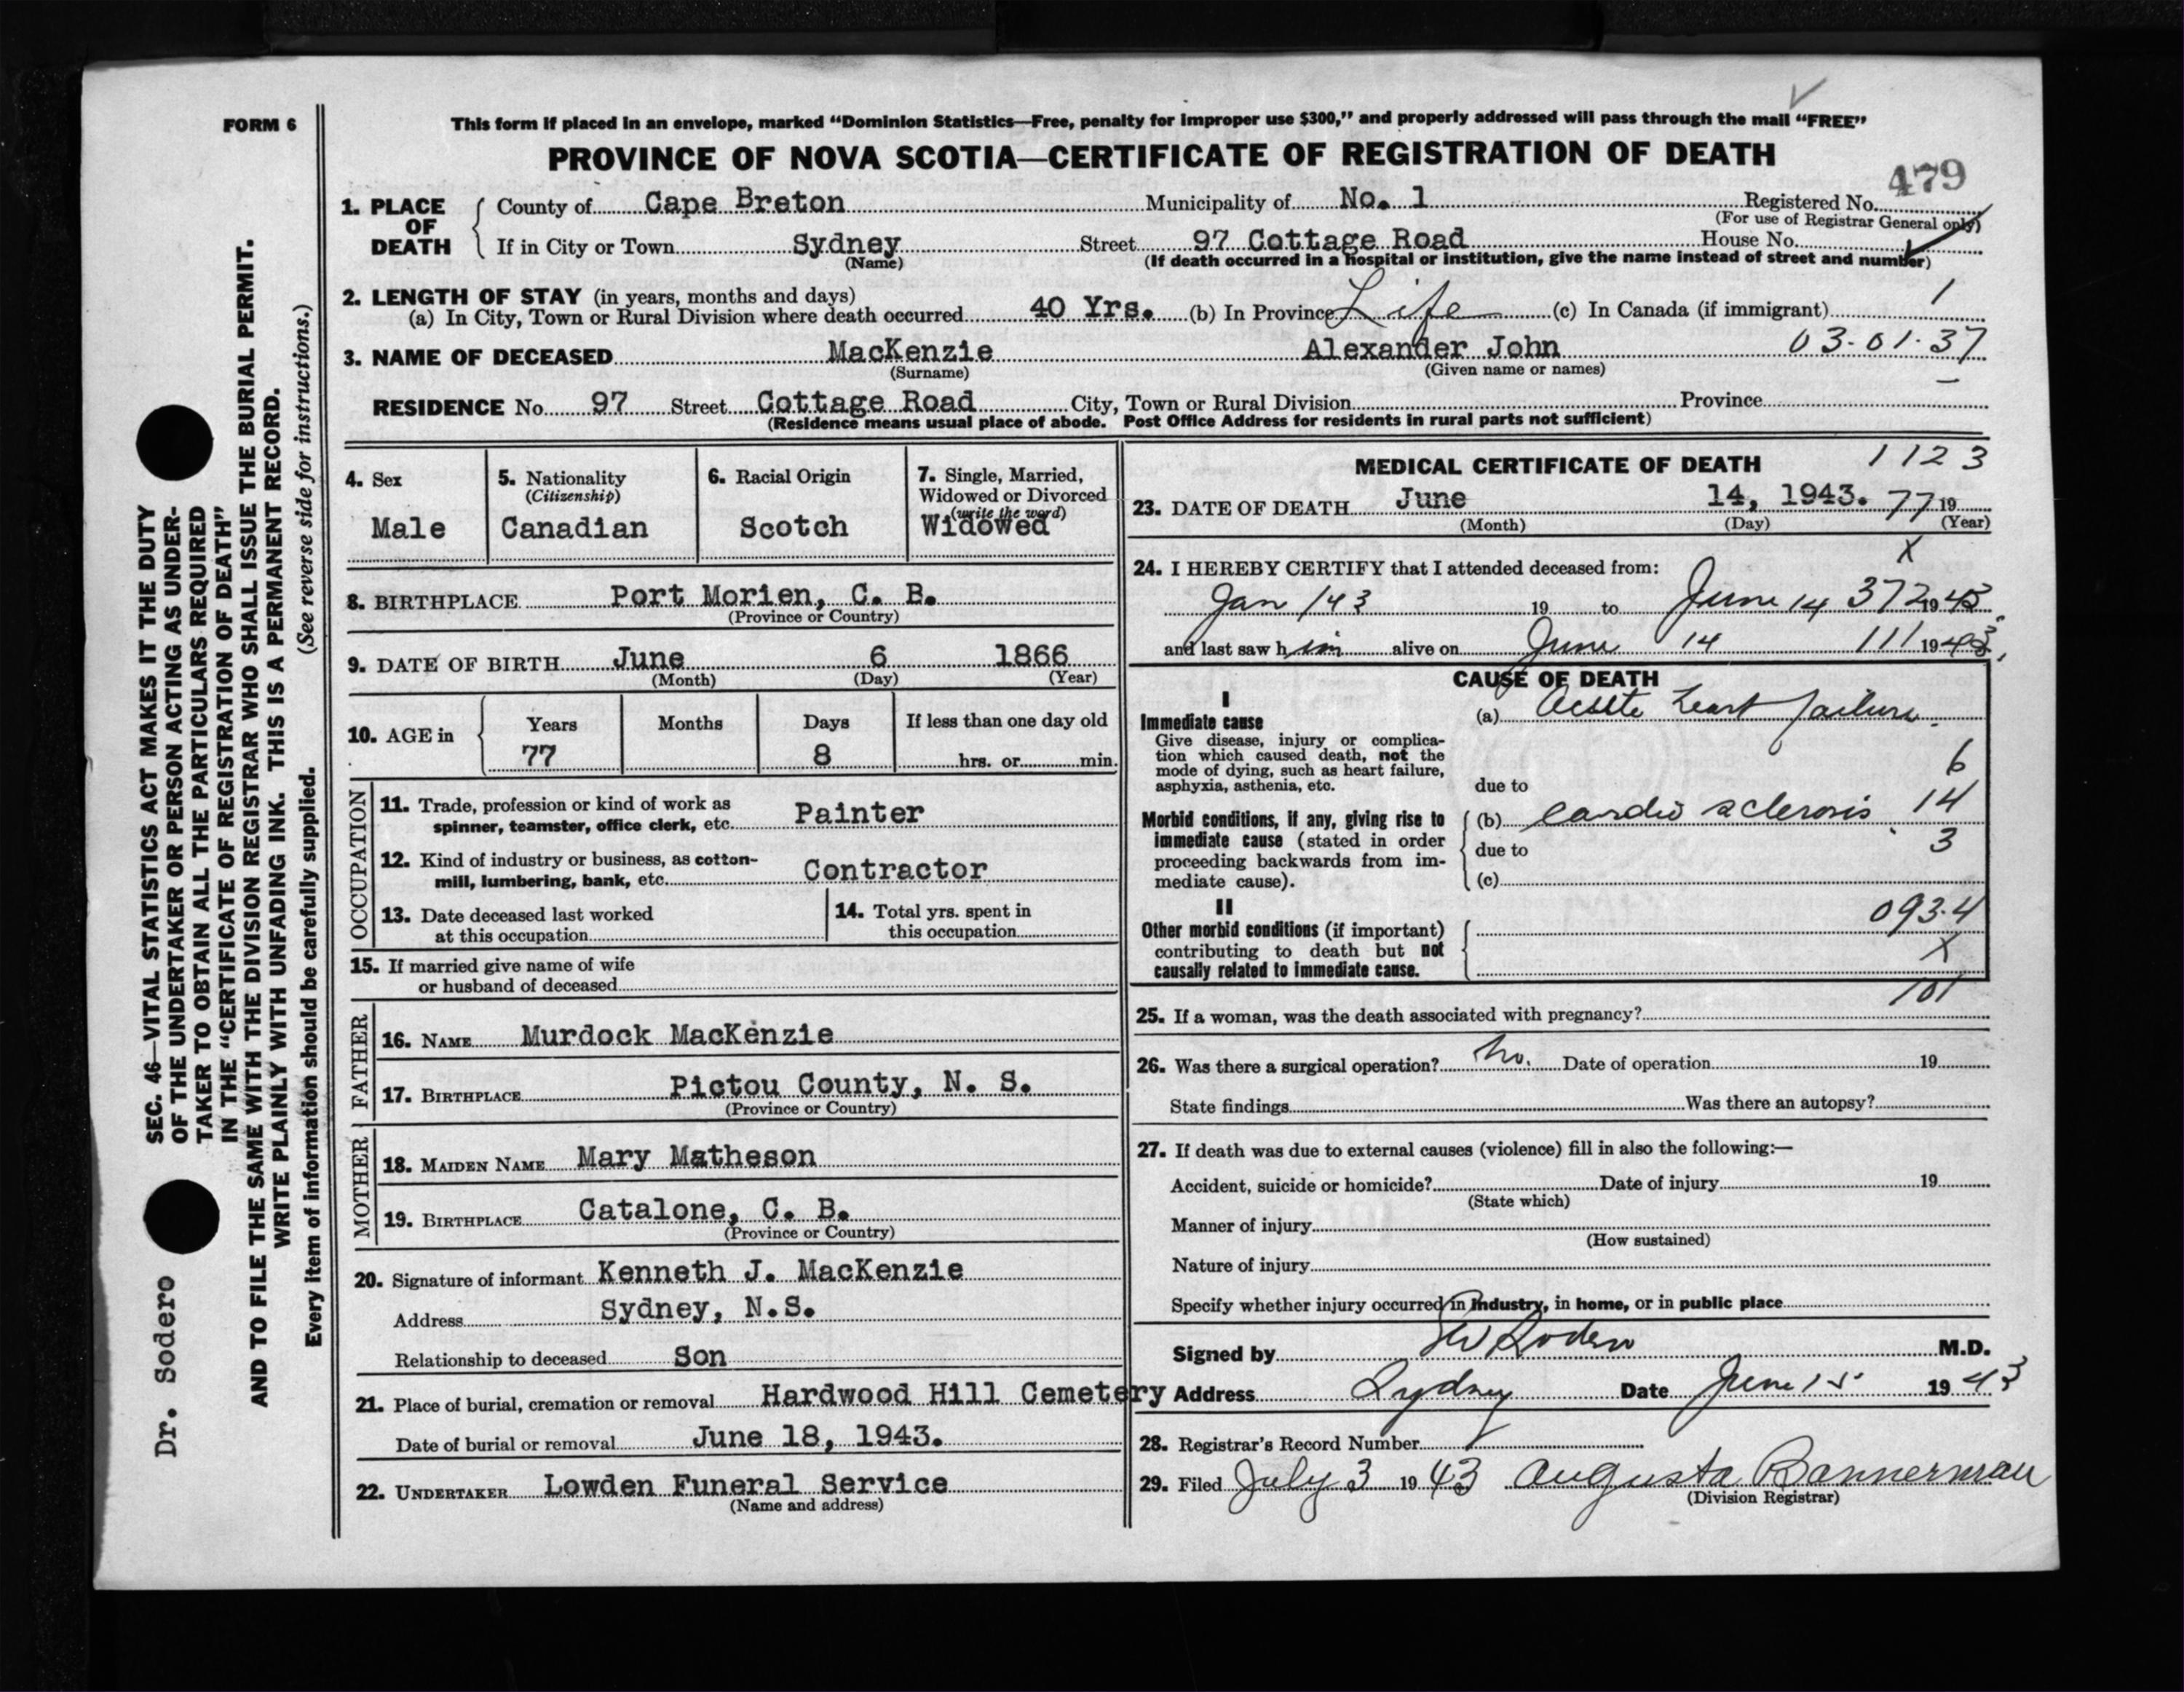 FORM 6
This form if placed in an envelope, marked “Dominion Statistics—Free, penalty for improper use $300,” and properly addressed will pass through the mail “FREE”
PROVINCE OF NOVA SCOTIA—CERTIFICATE OF REGISTRATION OF DEATH
479
1. PLACE OF DEATH
County of Cape Breton Municipality of No. 1 Registered No.
(For use of Registrar General only)
If in City or Town Sydney Street 97 Cottage Road House No.
(Name) (If death occurred in a hospital or institution, give the name instead of street and number)
2. LENGTH OF STAY (in years, months and days)
(a) In City, Town or Rural Division where death occurred 40 Yrs. (b) In Province Life (c) In Canada (if immigrant) 1
3. NAME OF DECEASED MacKenzie Alexander John 03-01-37
(Surname) (Given name or names)
RESIDENCE No. 97 Street Cottage Road City, Town or Rural Division Province
(Residence means usual place of abode. Post Office Address for residents in rural parts not sufficient)
4. Sex
Male
5. Nationality
(Citizenship)
Canadian
6. Racial Origin
Scotch
7. Single, Married,
Widowed or Divorced
(write the word)
Widowed
8. BIRTHPLACE Port Morien, C. B.
(Province or Country)
9. DATE OF BIRTH June 6 1866
(Month) (Day) (Year)
10. AGE in
Years Months Days If less than one day old
77 8 hrs. or min.
OCCUPATION
11. Trade, profession or kind of work as
spinner, teamster, office clerk, etc. Painter
12. Kind of industry or business, as cotton-
mill, lumbering, bank, etc. Contractor
13. Date deceased last worked
at this occupation
14. Total yrs. spent in
this occupation
15. If married give name of wife
or husband of deceased
FATHER
16. NAME Murdock MacKenzie
17. BIRTHPLACE Pictou County, N. S.
(Province or Country)
MOTHER
18. MAIDEN NAME Mary Matheson
19. BIRTHPLACE Catalone, C. B.
(Province or Country)
20. Signature of informant Kenneth J. MacKenzie
Address Sydney, N.S.
Relationship to deceased Son
21. Place of burial, cremation or removal Hardwood Hill Cemetery
Date of burial or removal June 18, 1943.
22. UNDERTAKER Lowden Funeral Service
(Name and address)
MEDICAL CERTIFICATE OF DEATH 1123
23. DATE OF DEATH June 14, 1943. 77 19
(Month) (Day) (Year)
X
24. I HEREBY CERTIFY that I attended deceased from:
Jan 1 43 19 to June 14 372 19 43
and last saw him alive on June 14 111 19 43
CAUSE OF DEATH
I
Immediate cause
Give disease, injury or complica-
tion which caused death, not the
mode of dying, such as heart failure,
asphyxia, asthenia, etc.
(a) Acute heart failure
6
due to
Morbid conditions, if any, giving rise to
immediate cause (stated in order
proceeding backwards from im-
mediate cause).
(b) Cardio sclerosis 14
due to 3
(c)
II
Other morbid conditions (if important)
contributing to death but not
causally related to immediate cause.
093.4
X
101
25. If a woman, was the death associated with pregnancy?
26. Was there a surgical operation? No. Date of operation 19
State findings Was there an autopsy?
27. If death was due to external causes (violence) fill in also the following:—
Accident, suicide or homicide? Date of injury 19
(State which)
Manner of injury
(How sustained)
Nature of injury
Specify whether injury occurred in industry, in home, or in public place
Signed by M.D.
Address Sydney Date June 15 19 43
28. Registrar's Record Number
29. Filed July 3 19 43 Augusta Bannerman
(Division Registrar)
SEC. 46—VITAL STATISTICS ACT MAKES IT THE DUTY
OF THE UNDERTAKER OR PERSON ACTING AS UNDER-
TAKER TO OBTAIN ALL THE PARTICULARS REQUIRED
IN THE “CERTIFICATE OF REGISTRATION OF DEATH”
AND TO FILE THE SAME WITH THE DIVISION REGISTRAR WHO SHALL ISSUE THE BURIAL PERMIT.
WRITE PLAINLY WITH UNFADING INK. THIS IS A PERMANENT RECORD.
Every item of information should be carefully supplied. (See reverse side for instructions.)
Dr. Sodero